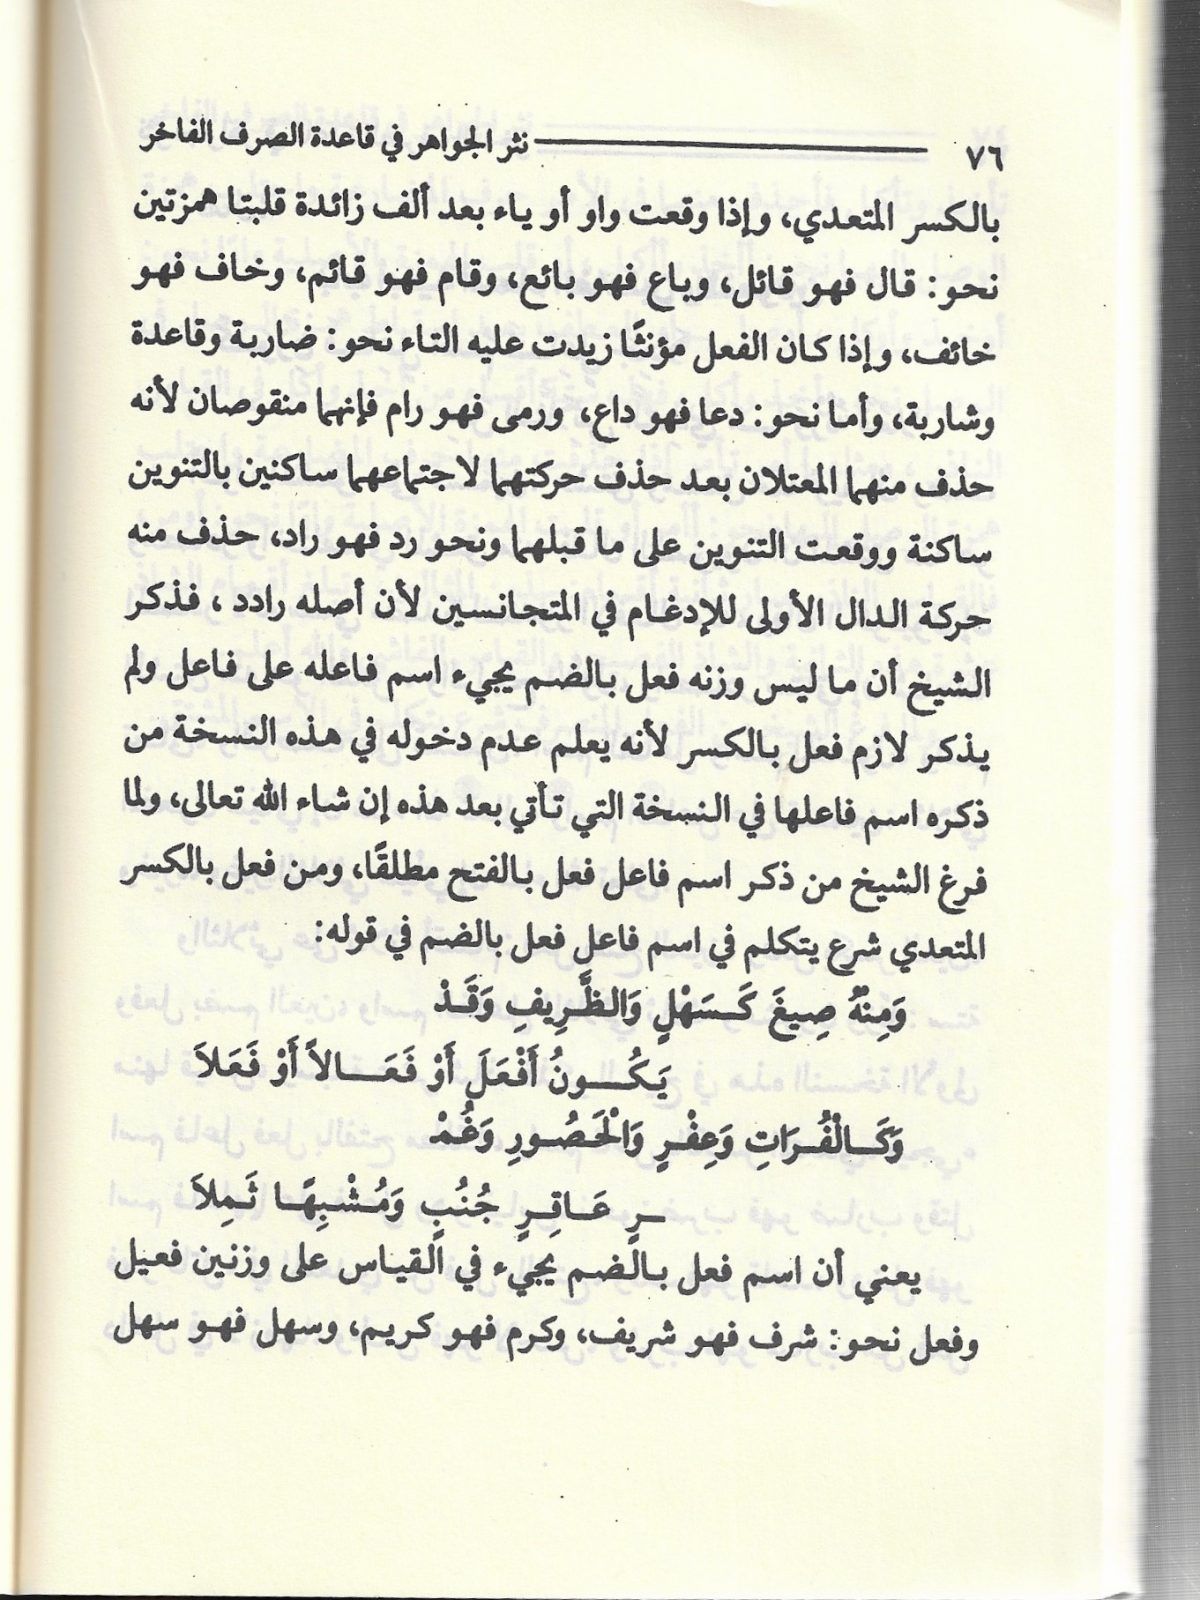 ٧٦ نثر الجواهر في قاعدة الصرف الفاخر
بالكسر المتعدي، وإذا وقعت واو أو ياء بعد ألف زائدة قلبتا همزتين
نحو: قال فهو قائل، وباع فهو بائع، وقام فهو قائم، وخاف فهو
خائف، وإذا كان الفعل مؤنثًا زيدت عليه التاء نحو: ضاربة وقاعدة
وشاربة، وأما نحو: دعا فهو داع، ورمى فهو رام فإنهما منقوصان لأنه
حذف منهما المعتلان بعد حذف حركتهما لاجتماعهما ساكنين بالتنوين
ساكنة ووقعت التنوين على ما قبلهما ونحو رد فهو راد، حذف منه
حركة الدال الأولى للإدغام في المتجانسين لأن أصله رادد، فذكر
الشيخ أن ما ليس وزنه فعل بالضم يجيء اسم فاعله على فاعل ولم
يذكر لازم فعل بالكسر لأنه يعلم عدم دخوله في هذه النسخة من
ذكره اسم فاعلها في النسخة التي تأتي بعد هذه إن شاء الله تعالى، ولما
فرغ الشيخ من ذكر اسم فاعل فعل بالفتح مطلقًا، ومن فعل بالكسر
المتعدي شرع يتكلم في اسم فاعل فعل بالضم في قوله:
وَمِنْهُ صِيغَ كَسَهْلٍ وَالظَّرِيفِ وَقَدْ
يَكُونُ أَفْعَلَ أَوْ فَعَالاً أَوْ فَعَلاَ
وَكَالْفُرَاتِ وَعِفْرٍ وَالْحَصُورِ وَغُمْ
ـرٍ عَاقِرٍ جُنُبٍ وَمُشْبِهًا ثَمِلاَ
يعني أن اسم فعل بالضم يجيء في القياس على وزنين فعيل
وفعل نحو: شرف فهو شريف، وكرم فهو كريم، وسهل فهو سهل